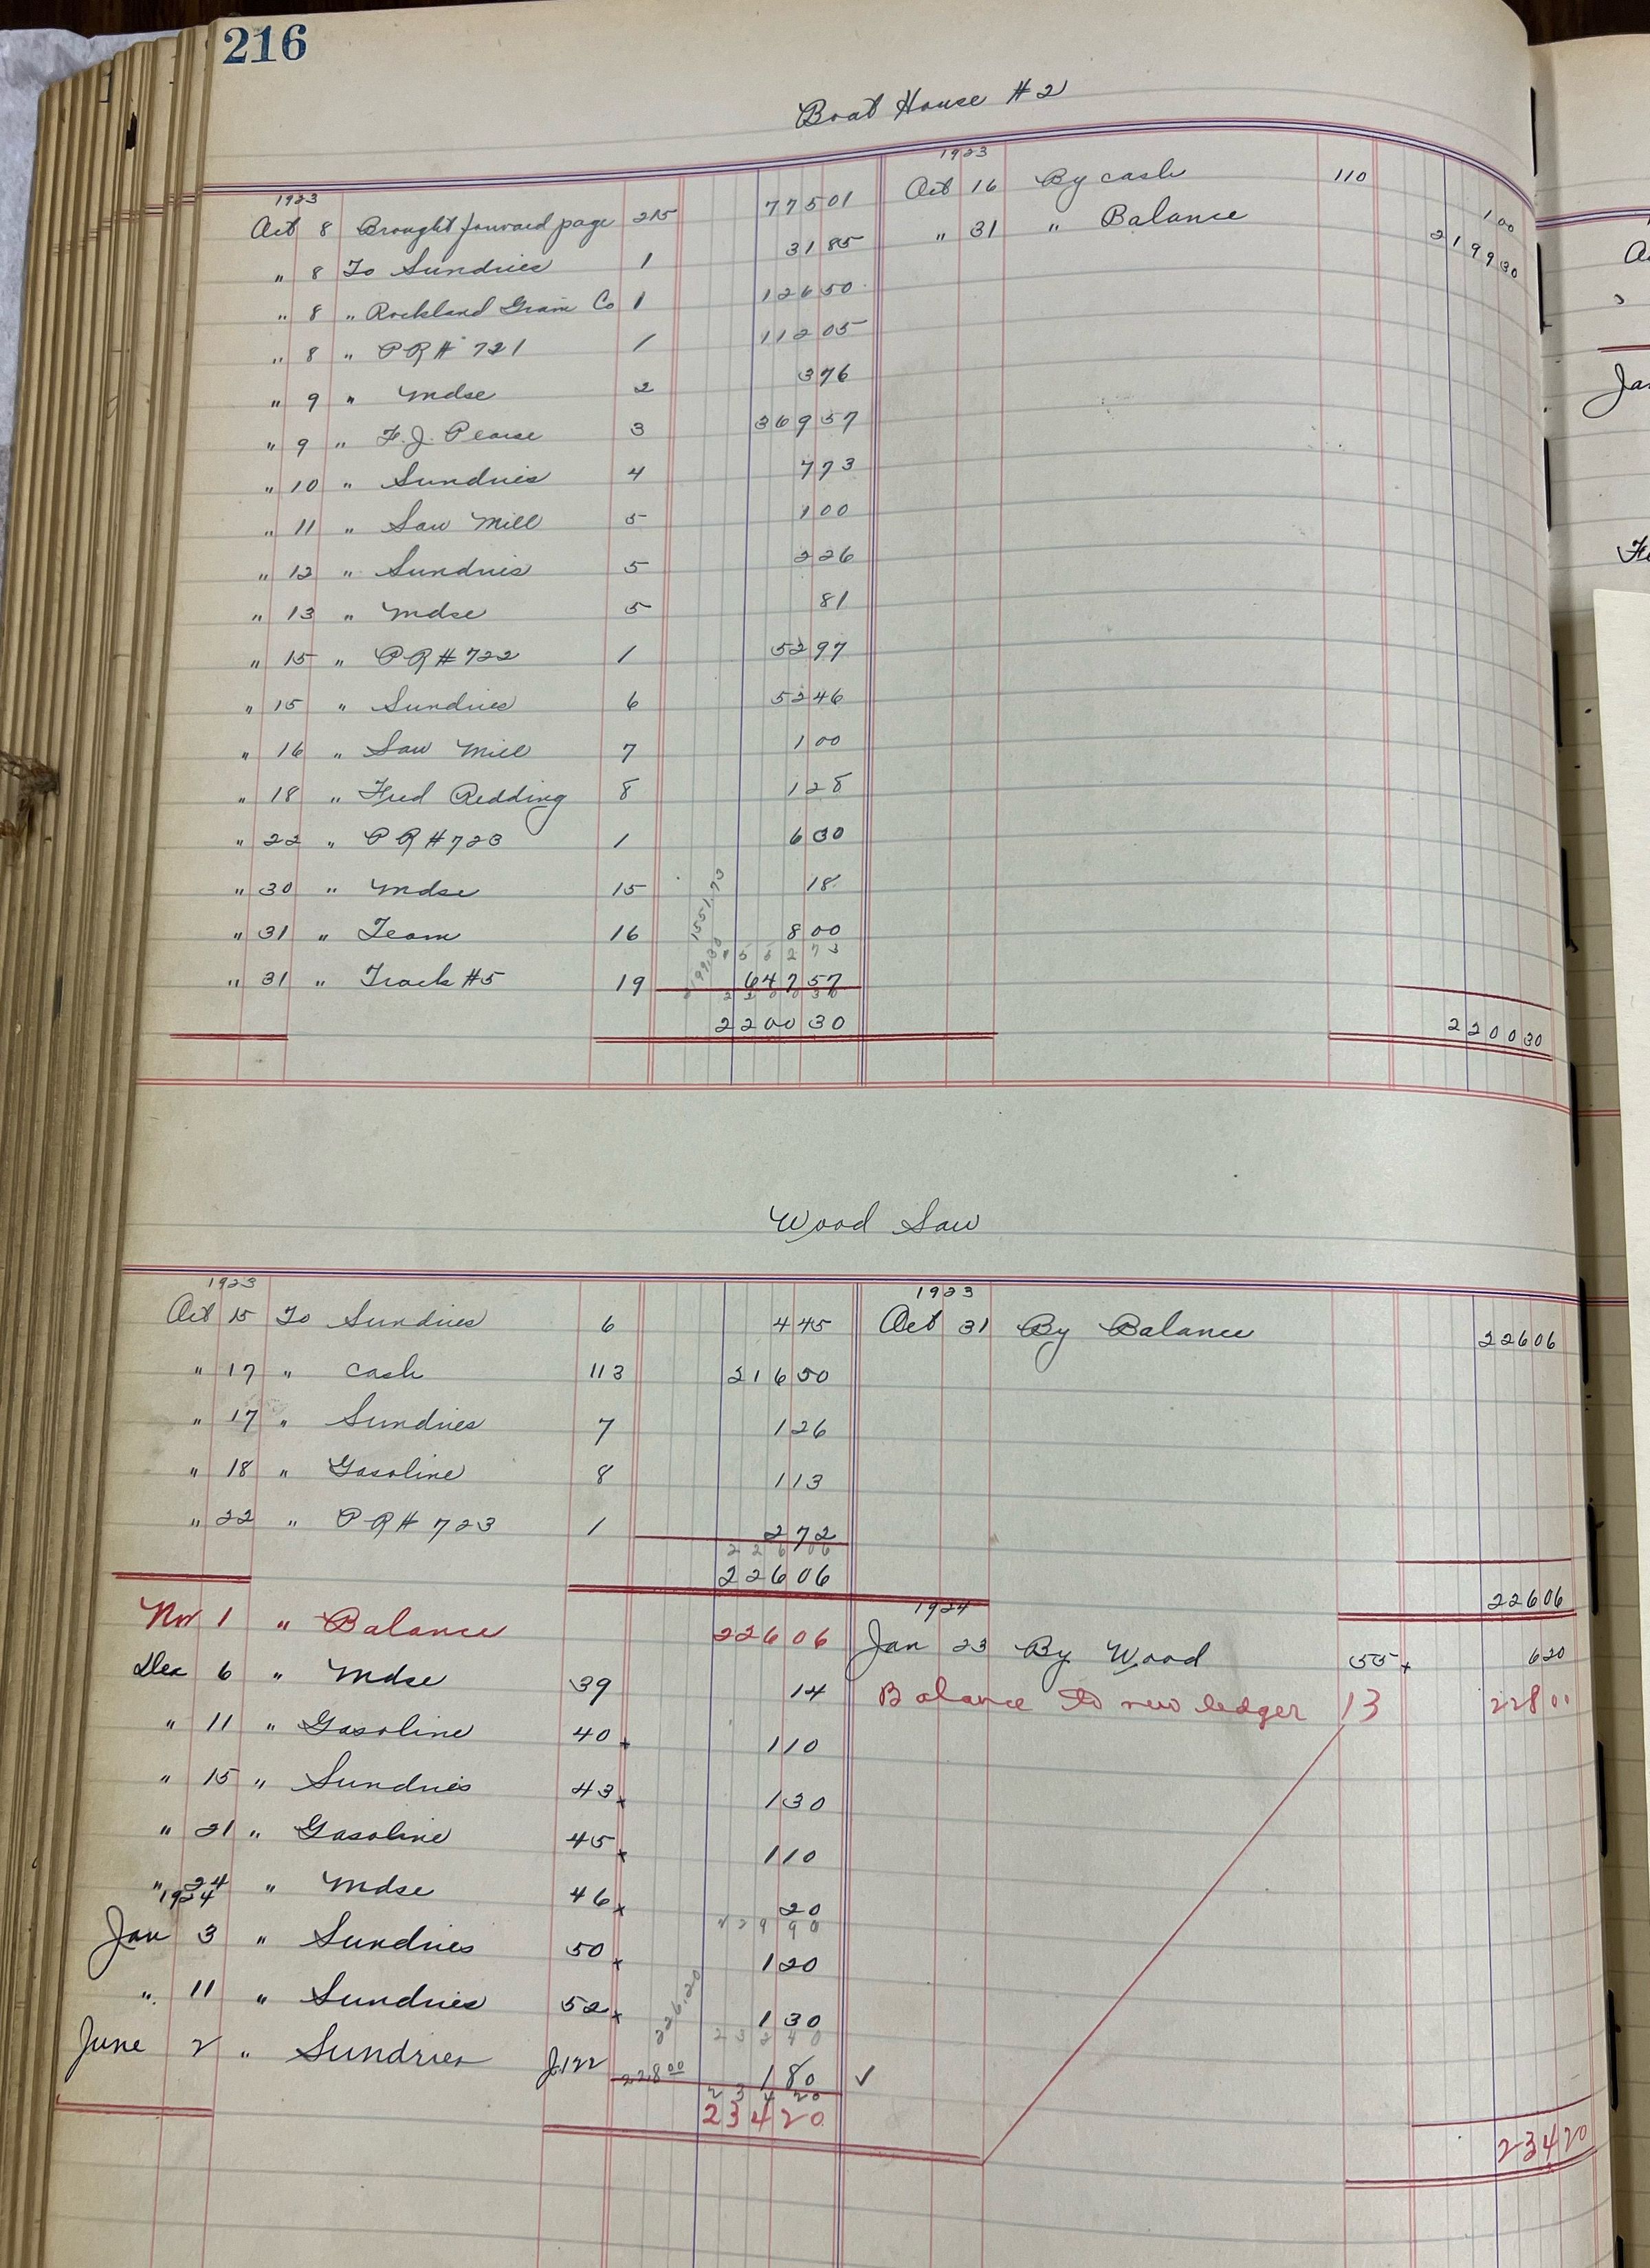 216
Boat House #2
1923
Oct 8 Brought forward page 215 775 01
" 8 To Sundries 1 31 85
" 8 " Rockland Grain Co 1 126 50
" 8 " PR# 721 1 112 05
" 9 " Mdse 2 3 76
" 9 " F.J. Pearse 3 369 57
" 10 " Sundries 4 7 73
" 11 " Saw Mill 5 1 00
" 12 " Sundries 5 2 26
" 13 " Mdse 5 81
" 15 " PR# 722 1 52 97
" 15 " Sundries 6 52 46
" 16 " Saw Mill 7 1 00
" 18 " Fred Redding 8 1 28
" 22 " PR# 723 1 6 30
" 30 " Mdse 15 18
" 31 " Team 16 8 00
1551.73
1552 73
" 31 " Track #5 19 647 57
2199.30
2200 30
2200 30
1923
Oct 16 By cash 110 1 00
" 31 " Balance 2199 30
2200 30
Wood Saw
1923
Oct 15 To Sundries 6 4 45
" 17 " cash 113 216 50
" 17 " Sundries 7 1 26
" 18 " Gasoline 8 1 13
" 22 " PR# 723 1 2 72
226 06
226 06
1923
Oct 31 By Balance 226 06
226 06
Nov 1 " Balance 226 06
Dec 6 " Mdse 39 14
" 11 " Gasoline 40 x 1 10
" 15 " Sundries 43 x 1 30
" 21 " Gasoline 45 x 1 10
" 24 " Mdse 46 x 20
229 90
1924
Jan 3 " Sundries 50 x 1 20
" 11 " Sundries 52 x 1 30
226.20
232 40
June 2 " Sundries J122 228 00 1 80 ✓
234 20
234 20
1924
Jan 23 By Wood 55 x 6 20
Balance to new ledger 13 228 00
234 20
Jan